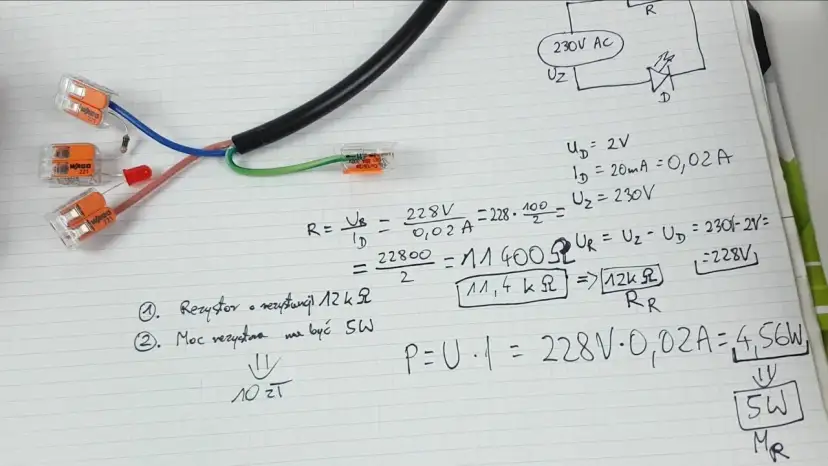 R
230V AC
UZ
D
UD = 2V
ID = 20mA = 0,02A
UZ = 230V
R = UR/ID = 228V/0,02A = 228 · 100/2 =
UR = UZ - UD = 230V - 2V =
= 228V
= 22800/2 = 11400Ω
11,4 kΩ => 12kΩ
RR
1. Rezystor o rezystancji 12kΩ
2. Moc rezystora ma być 5W
10 zł
P = U · I = 228V · 0,02A = 4,56W
5W
MR
WAGO
221